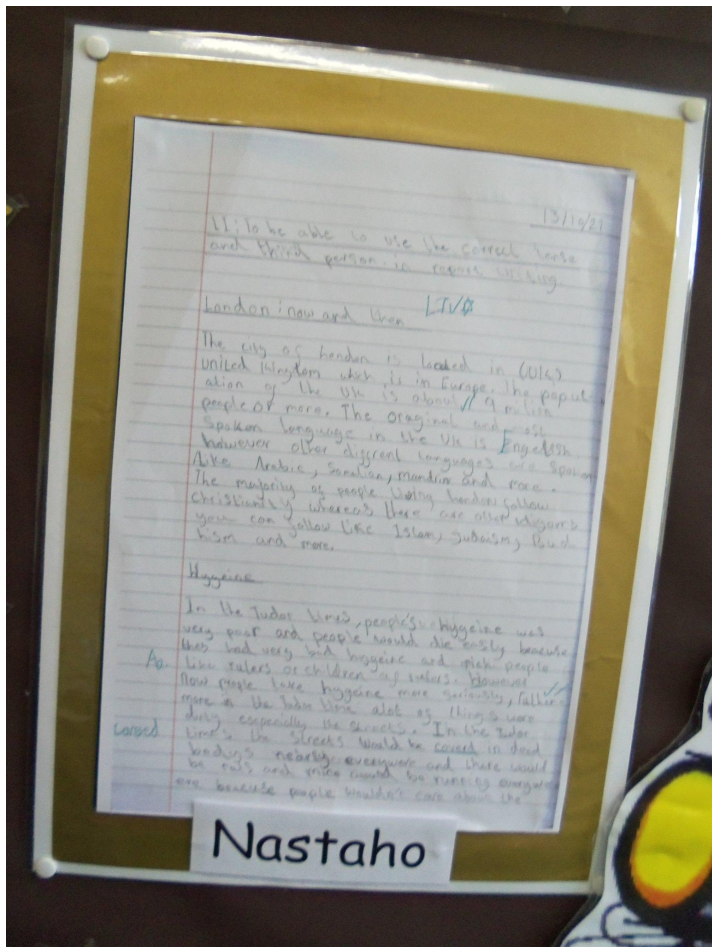 13/10/21
LI: To be able to use the correct tense
and third person in report writing.
LTV
London: now and then
The city of London is located in (UK)
United Kingdom which is in Europe. The popul
ation of the UK is about 9 million
people or more. The oraginal and most
spoken language in the UK is Engelish
however other different languages are spoken
like Arabic, Somalian, mandrin and more.
The majority of people living london follow
christianity whereas there are other religons
you can follow like Islam, Judaism, Bud
hism and more.
Hygeine
In the Tudor times, people's hygeine was
very poor and people would die easly beacuse
they had very bad hygeine and people
like rulers or children of rulers. However
Now people take hygeine more seriously, further
more in the tudor time alot of things were
dirty especially the streets. In the tudor
covered
times the streets would be coverd in dead
bodys nearly everywere and there would
be rats and mice would be running everywere
beacuse people wouldn't care about the
Nastaho